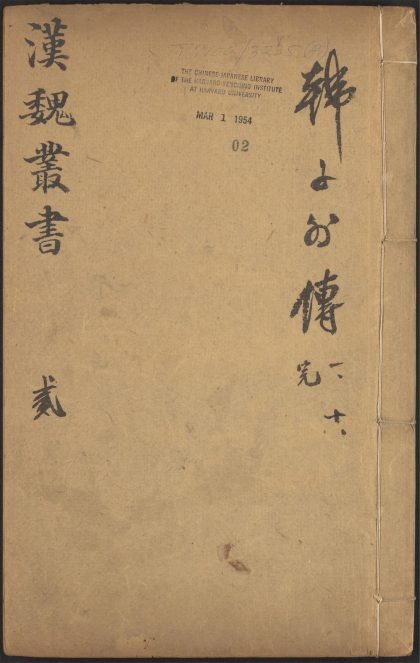 韓詩外傳
一、十、
完
THE CHINESE-JAPANESE LIBRARY
OF THE HARVARD-YENCHING INSTITUTE
AT HARVARD UNIVERSITY
MAR 1 1954
02
漢魏叢書 貳